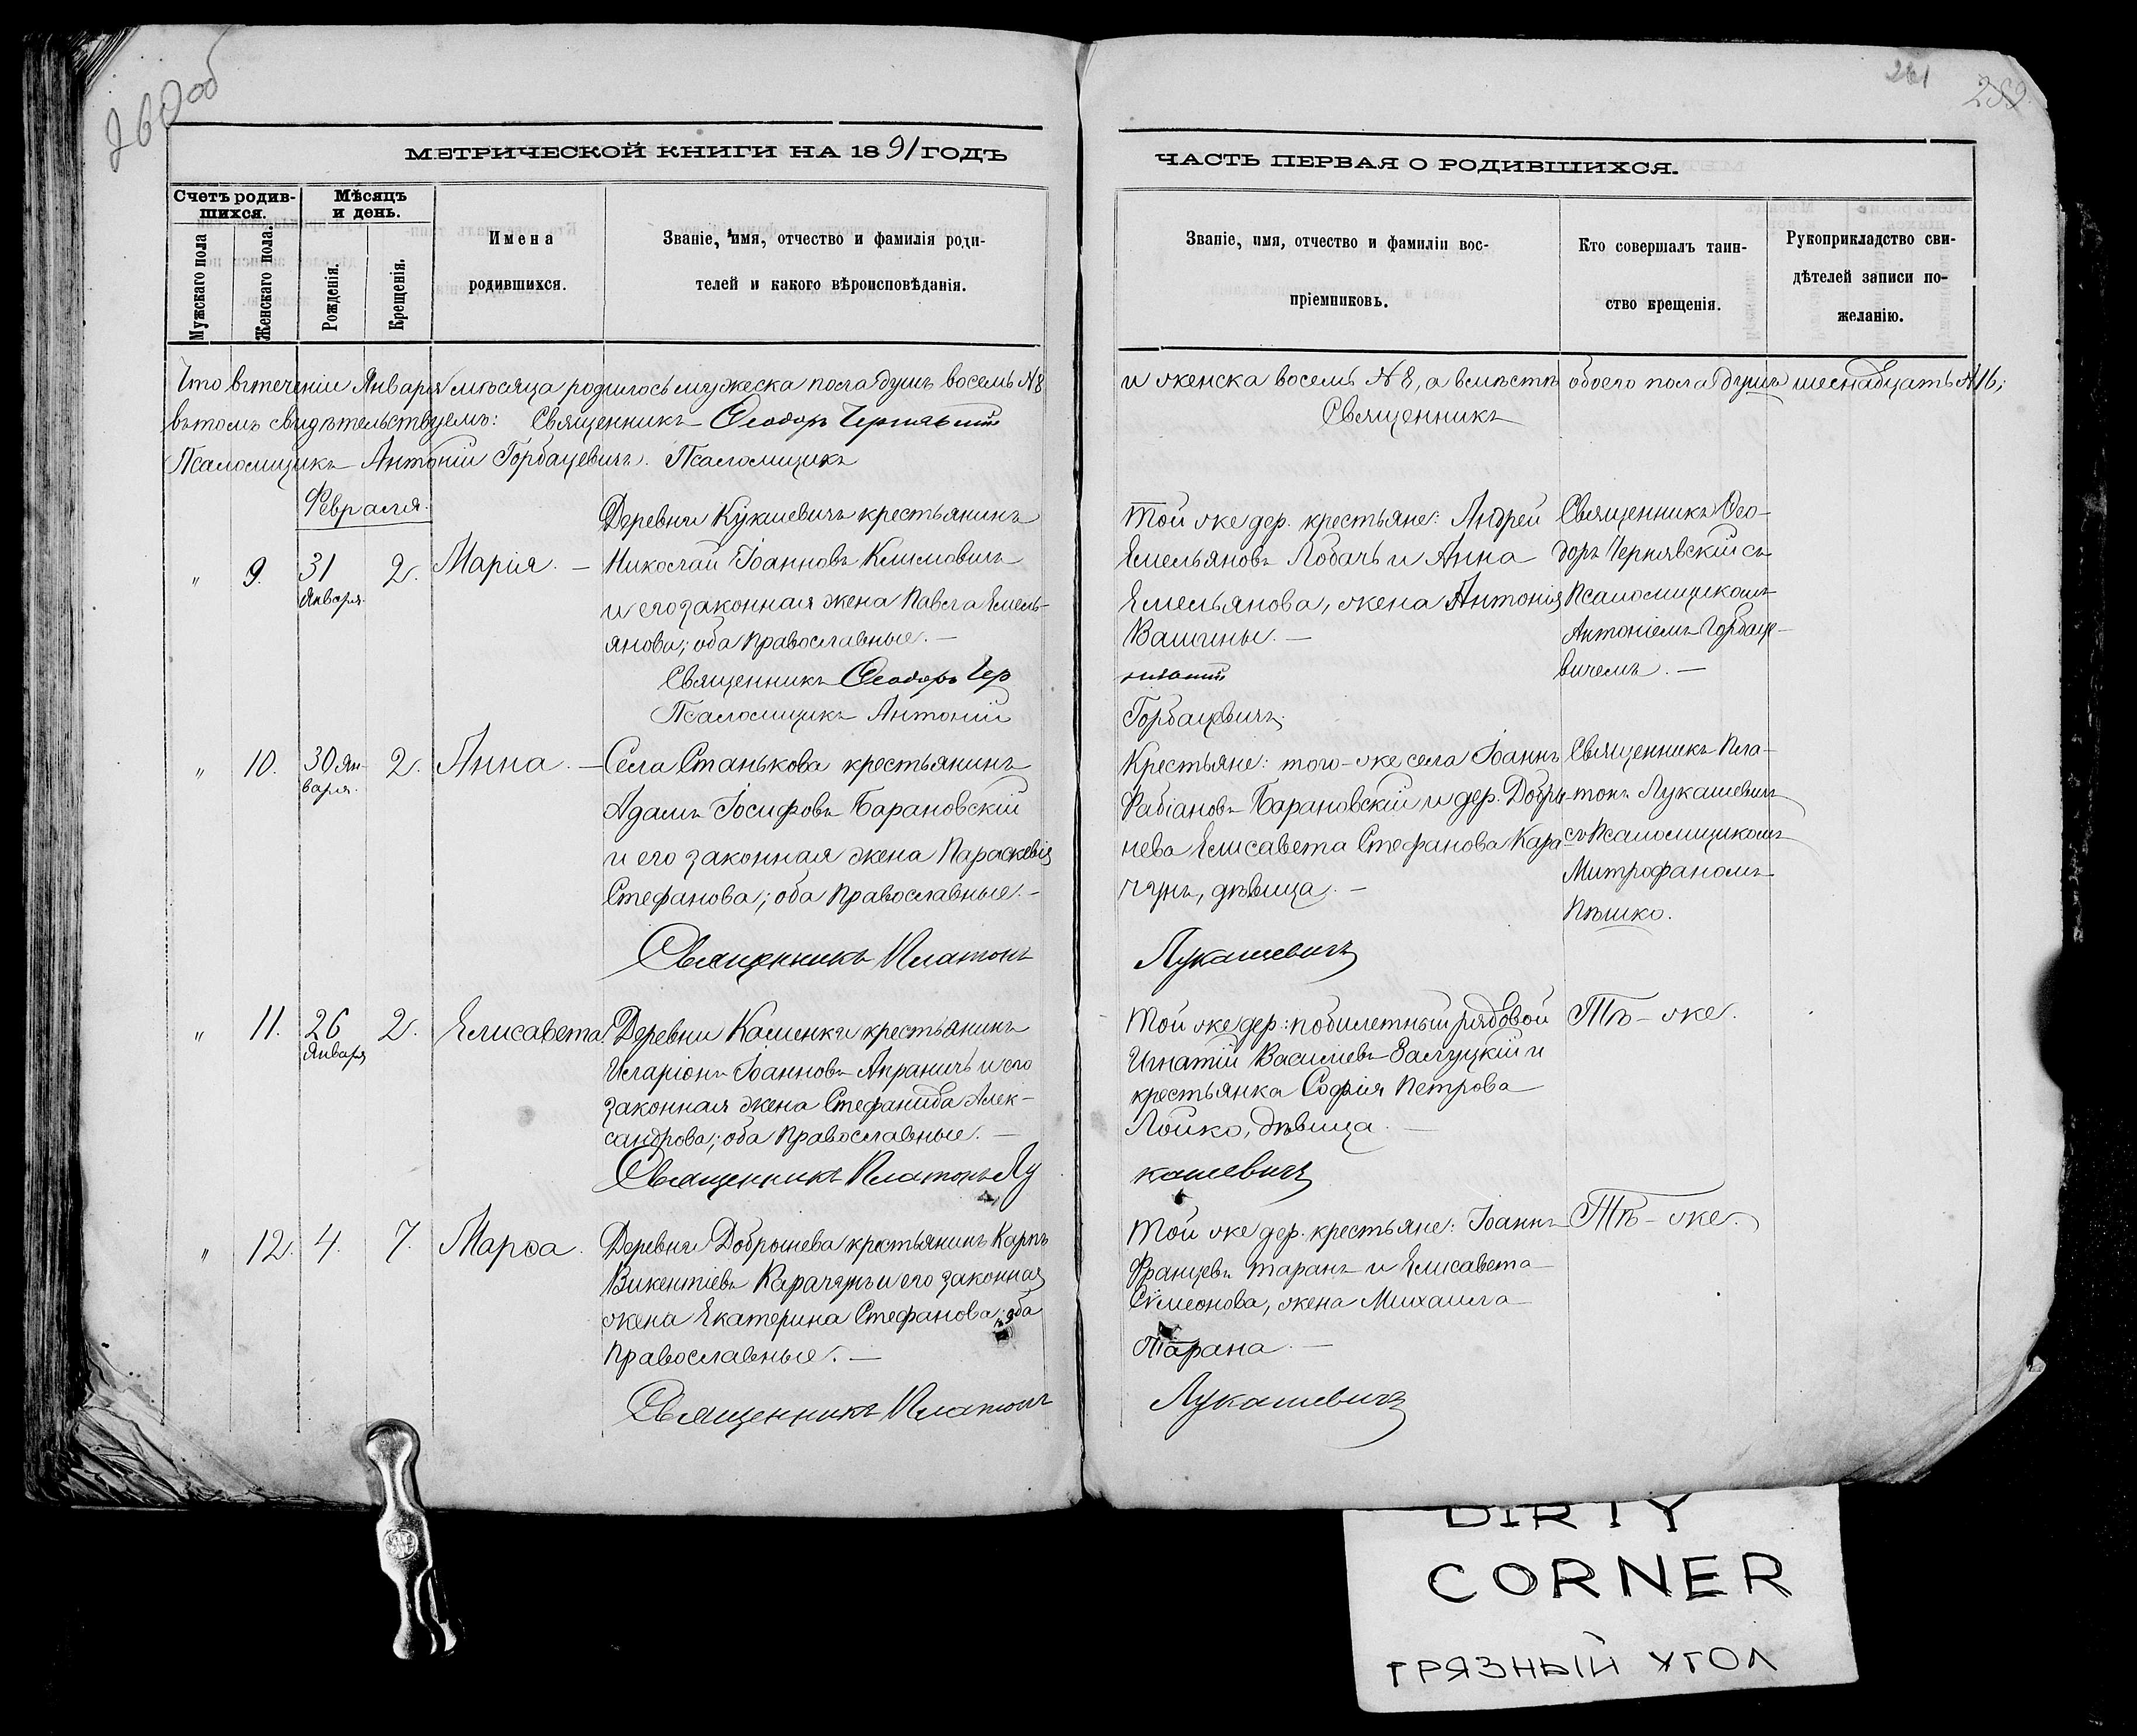 260 об
261
289.
МЕТРИЧЕСКОЙ КНИГИ НА 1891 ГОДЪ
Счетъ родив-
шихся.
Мѣсяцъ
и день.
Мужскаго пола
Женскаго пола.
Рожденія.
Крещенія.
Имена
родившихся.
Званіе, имя, отчество и фамилія роди-
телей и какого вѣроисповѣданія.
Что втеченіи Января мѣсяца родилось мужеска пола душъ восемь №8
вътомъ свидѣтельствуемъ: Священникъ Ѳеодоръ Чернявскій
Псаломщикъ Антоній Горбацевичъ. Псаломщикъ
Февраля.
„ 9. 31 Января. 2. Марія. —
Деревни Кукшевичъ крестьянинъ
Николай Іоанновъ Климовичъ
и его законная жена Павла Емель-
янова; оба православные. —
Священникъ Ѳеодоръ Чер
Псаломщикъ Антоній
„ 10. 30 Ян-
варя. 2. Анна. —
Села Станькова крестьянинъ
Адамъ Іосифовъ Барановскій
и его законная жена Параскевія
Стефанова; оба православные. —
Священникъ Платонъ
„ 11. 26 Января 2. Елисавета.
Деревни Каменки крестьянинъ
Иларіонъ Іоанновъ Апраничъ и его
законная жена Стефанида Алек-
сандрова; оба православные. —
Священникъ Платонъ Лу
„ 12. 4. 7. Марѳа.
Деревни Добрынева крестьянинъ Карпъ
Викентіевъ Карачунъ и его законная
жена Екатерина Стефанова; оба
православные. —
Священникъ Платонъ
ЧАСТЬ ПЕРВАЯ О РОДИВШИХСЯ.
Званіе, имя, отчество и фамиліи вос-
пріемниковъ.
Кто совершалъ таин-
ство крещенія.
Рукоприкладство сви-
дѣтелей записи по-
желанію.
и женска восемь №8, а вмѣстѣ обоего пола душъ шеснадцать №16;
Священникъ
Той же дер. крестьяне: Андрей
Емельяновъ Лобачъ и Анна
Емельянова, жена Антонія
Вашины. —
нявскій
Горбацевичъ.
Священникъ Ѳео-
доръ Чернявскій съ
Псаломщикомъ
Антоніемъ Горбаце-
вичемъ. —
Крестьяне: того-же села Іоаннъ
Фабіановъ Барановскій и дер. Добры-
нева Елисавета Стефанова Кара
чунъ, дѣвица. —
Лукашевичъ
Священникъ Пла-
тонъ Лукашевичъ
съ Псаломщикомъ
Митрофаномъ
Пѣшко.
Той же дер: побилетный рядовой
Игнатій Василіевъ Залуцкій и
крестьянка Софія Петрова
Лойко, дѣвица. —
кашевичъ
Тѣ-же.
Той же дер. крестьяне: Іоаннъ
Францевъ Таранъ и Елисавета
Сѵмеонова, жена Михаила
Тарана. —
Лукашевичъ
Тѣ-же.
DIRTY
CORNER
ГРЯЗНЫЙ УГОЛ